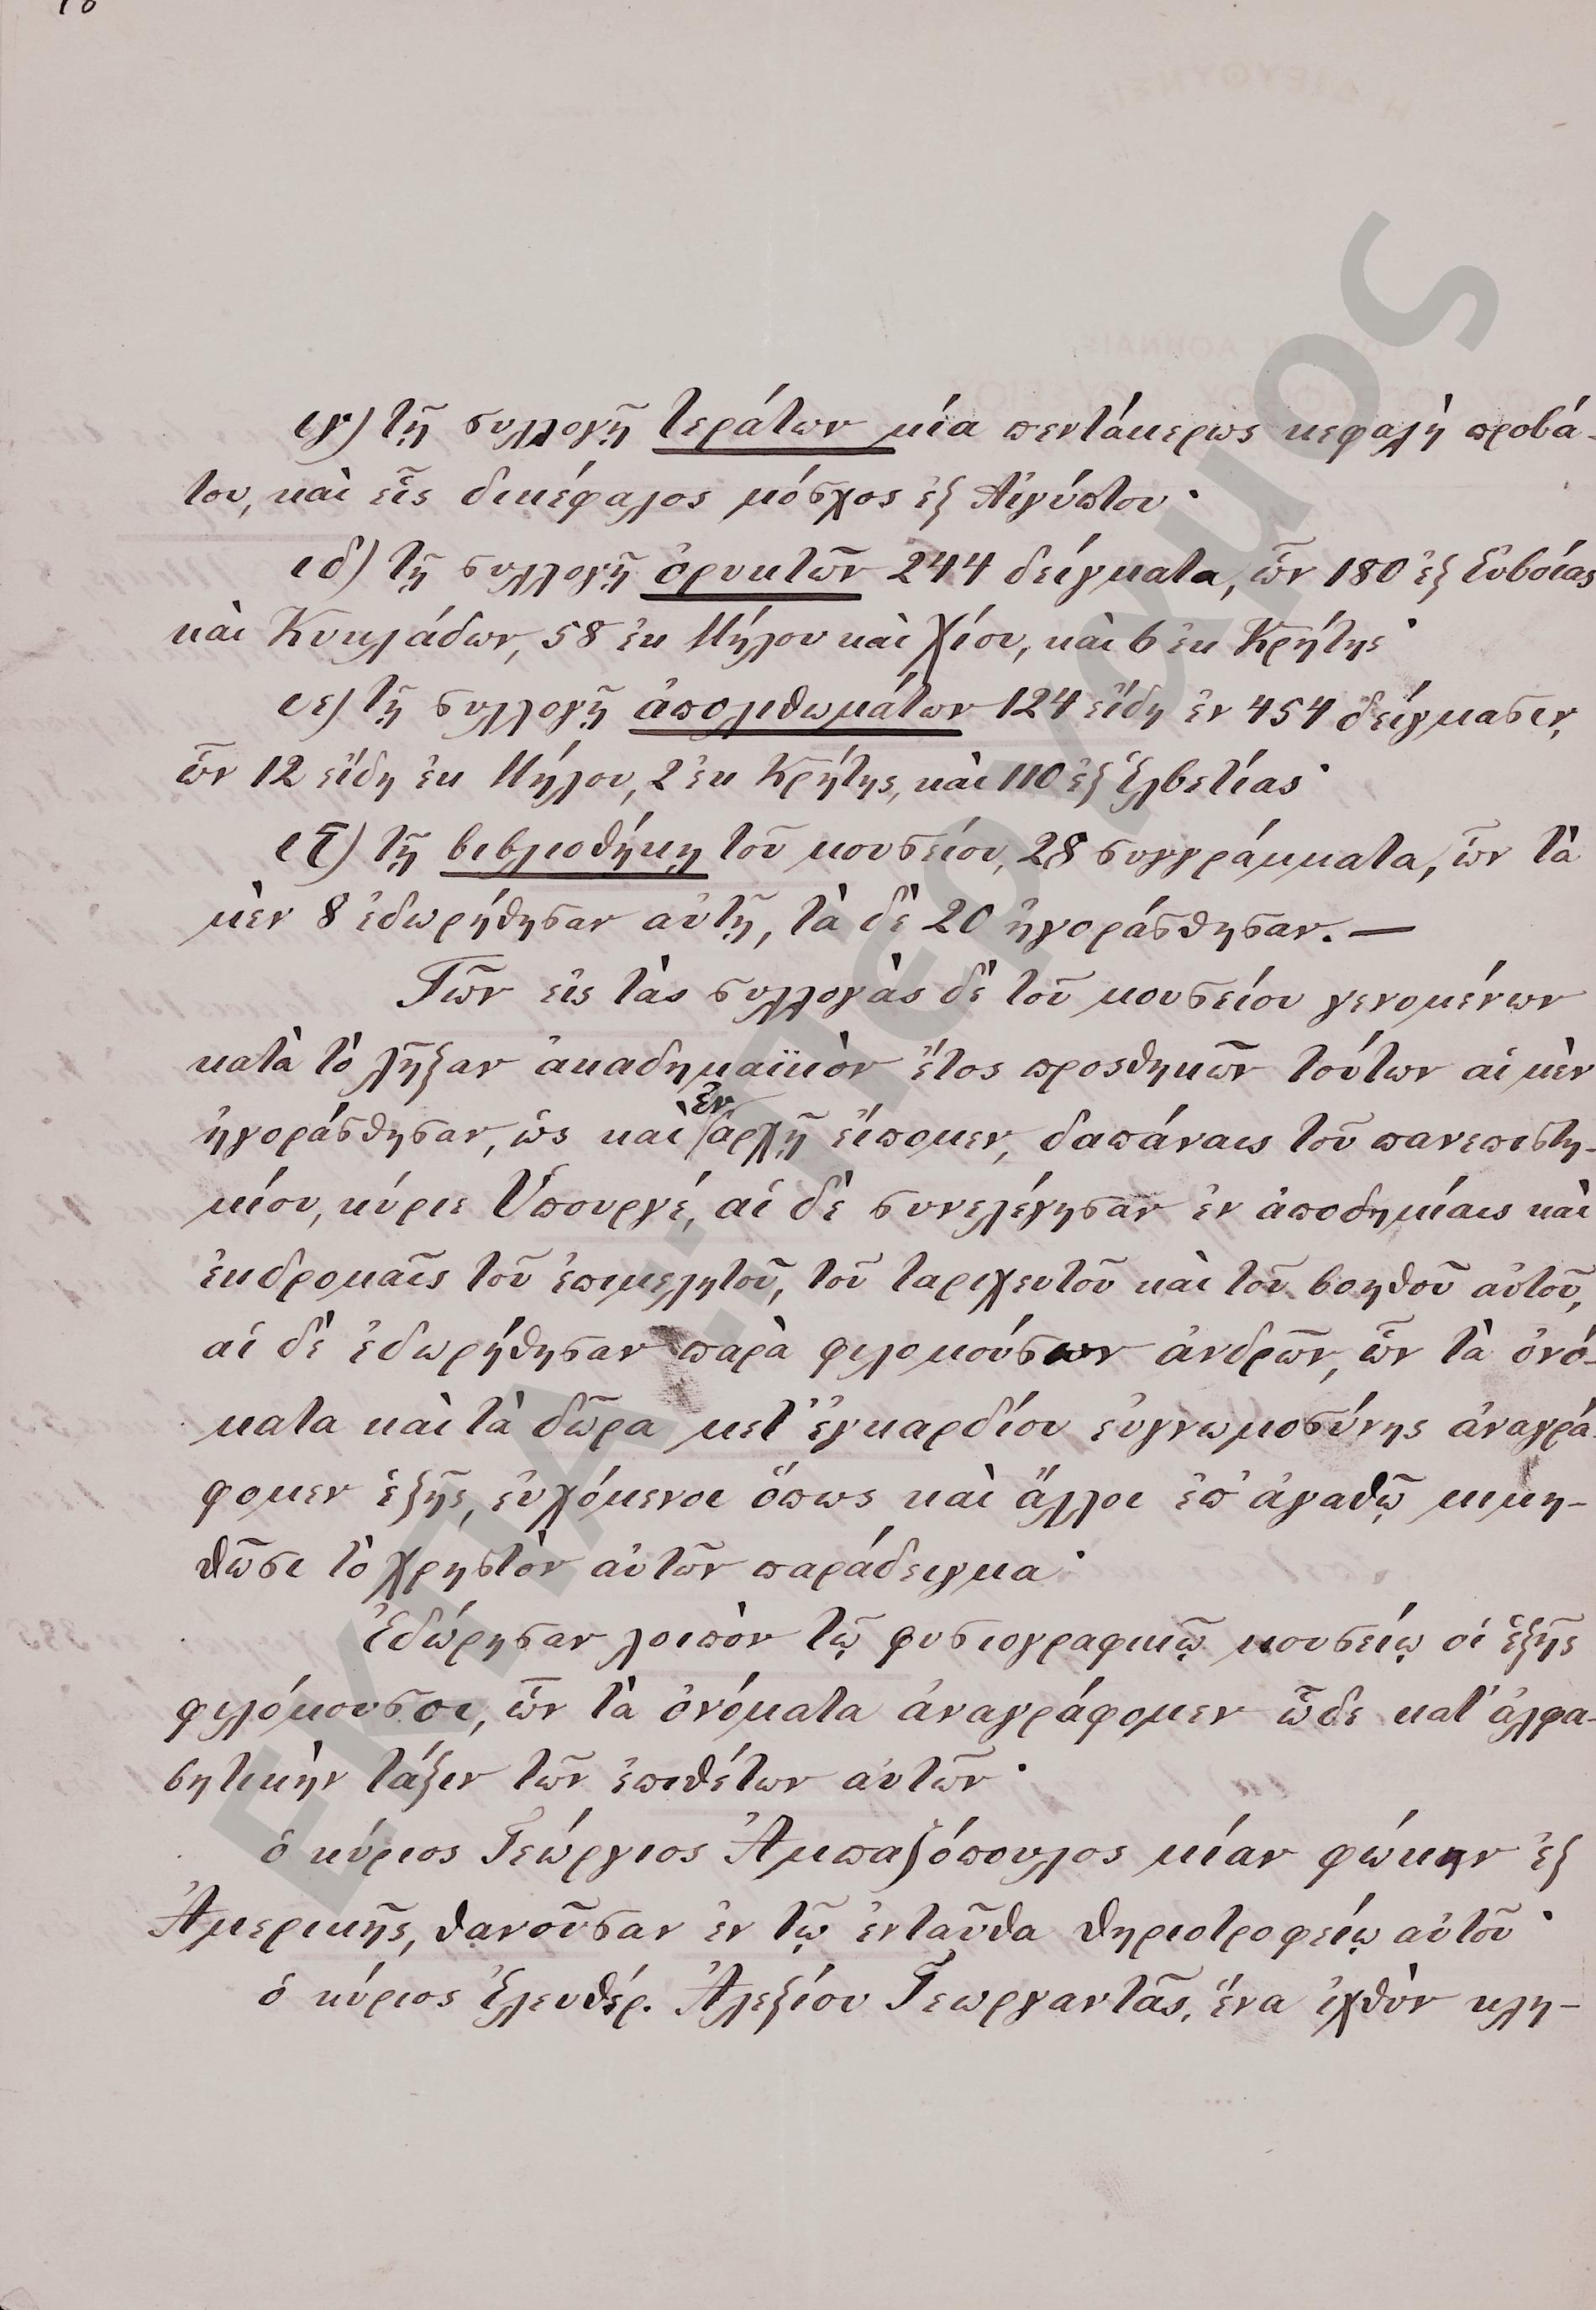 ιγ) τῇ συλλογῇ τεράτων μία πεντάκερως κεφαλὴ προβά-
του, καὶ εἷς δικέφαλος μόσχος ἐξ Αἰγύπτου·
ιδ) τῇ συλλογῇ ὀρυκτῶν 244 δείγματα, ὧν 180 ἐξ Εὐβοίας
καὶ Κυκλάδων, 58 ἐκ Μήλου καὶ Χίου, καὶ 6 ἐκ Κρήτης·
ιε) τῇ συλλογῇ ἀπολιθωμάτων 124 εἴδη ἐν 454 δείγμασιν,
ὧν 12 εἴδη ἐκ Μήλου, 2 ἐκ Κρήτης, καὶ 110 ἐξ Ἑλβετίας·
ιϛ) τῇ βιβλιοθήκῃ τοῦ μουσείου, 28 συγγράμματα, ὧν τὰ
μὲν 8 ἐδωρήθησαν αὐτῇ, τὰ δὲ 20 ἠγοράσθησαν. —
Τῶν εἰς τὰς συλλογὰς δὲ τοῦ μουσείου γενομένων
κατὰ τὸ λῆξαν ἀκαδημαϊκὸν ἔτος προσθηκῶν τούτων αἱ μὲν
ἠγοράσθησαν, ὡς καὶ ἐν ἀρχῇ εἴπομεν, δαπάναις τοῦ πανεπιστη-
μίου, κύριε Ὑπουργέ, αἱ δὲ συνελέγησαν ἐν ἀποδημίαις καὶ
ἐκδρομαῖς τοῦ ἐπιμελητοῦ, τοῦ ταριχευτοῦ καὶ τοῦ βοηθοῦ αὐτοῦ,
αἱ δὲ ἐδωρήθησαν παρὰ φιλομούσων ἀνδρῶν, ὧν τὰ ὀνό-
ματα καὶ τὰ δῶρα μετ' ἐγκαρδίου εὐγνωμοσύνης ἀναγρά-
φομεν ἑξῆς, εὐχόμενοι ὅπως καὶ ἄλλοι ἐπ' ἀγαθῷ μιμη-
θῶσι τὸ χρηστὸν αὐτῶν παράδειγμα·
Ἐδώρησαν λοιπὸν τῷ φυσιογραφικῷ μουσείῳ οἱ ἑξῆς
φιλόμουσοι, ὧν τὰ ὀνόματα ἀναγράφομεν ὧδε κατ' ἀλφα-
βητικὴν τάξιν τῶν ἐπιθέτων αὐτῶν·
ὁ κύριος Γεώργιος Ἀμπαζόπουλος μίαν φώκην ἐξ
Ἀμερικῆς, θανοῦσαν ἐν τῷ ἐνταῦθα θηριοτροφείῳ αὐτοῦ·
ὁ κύριος Ἐλευθέρ. Ἀλεξίου Γεωργαντᾶς, ἕνα ἰχθὺν κλη-
ΕΚΠΑ - ΙΣΤΟΡΙΚΟ